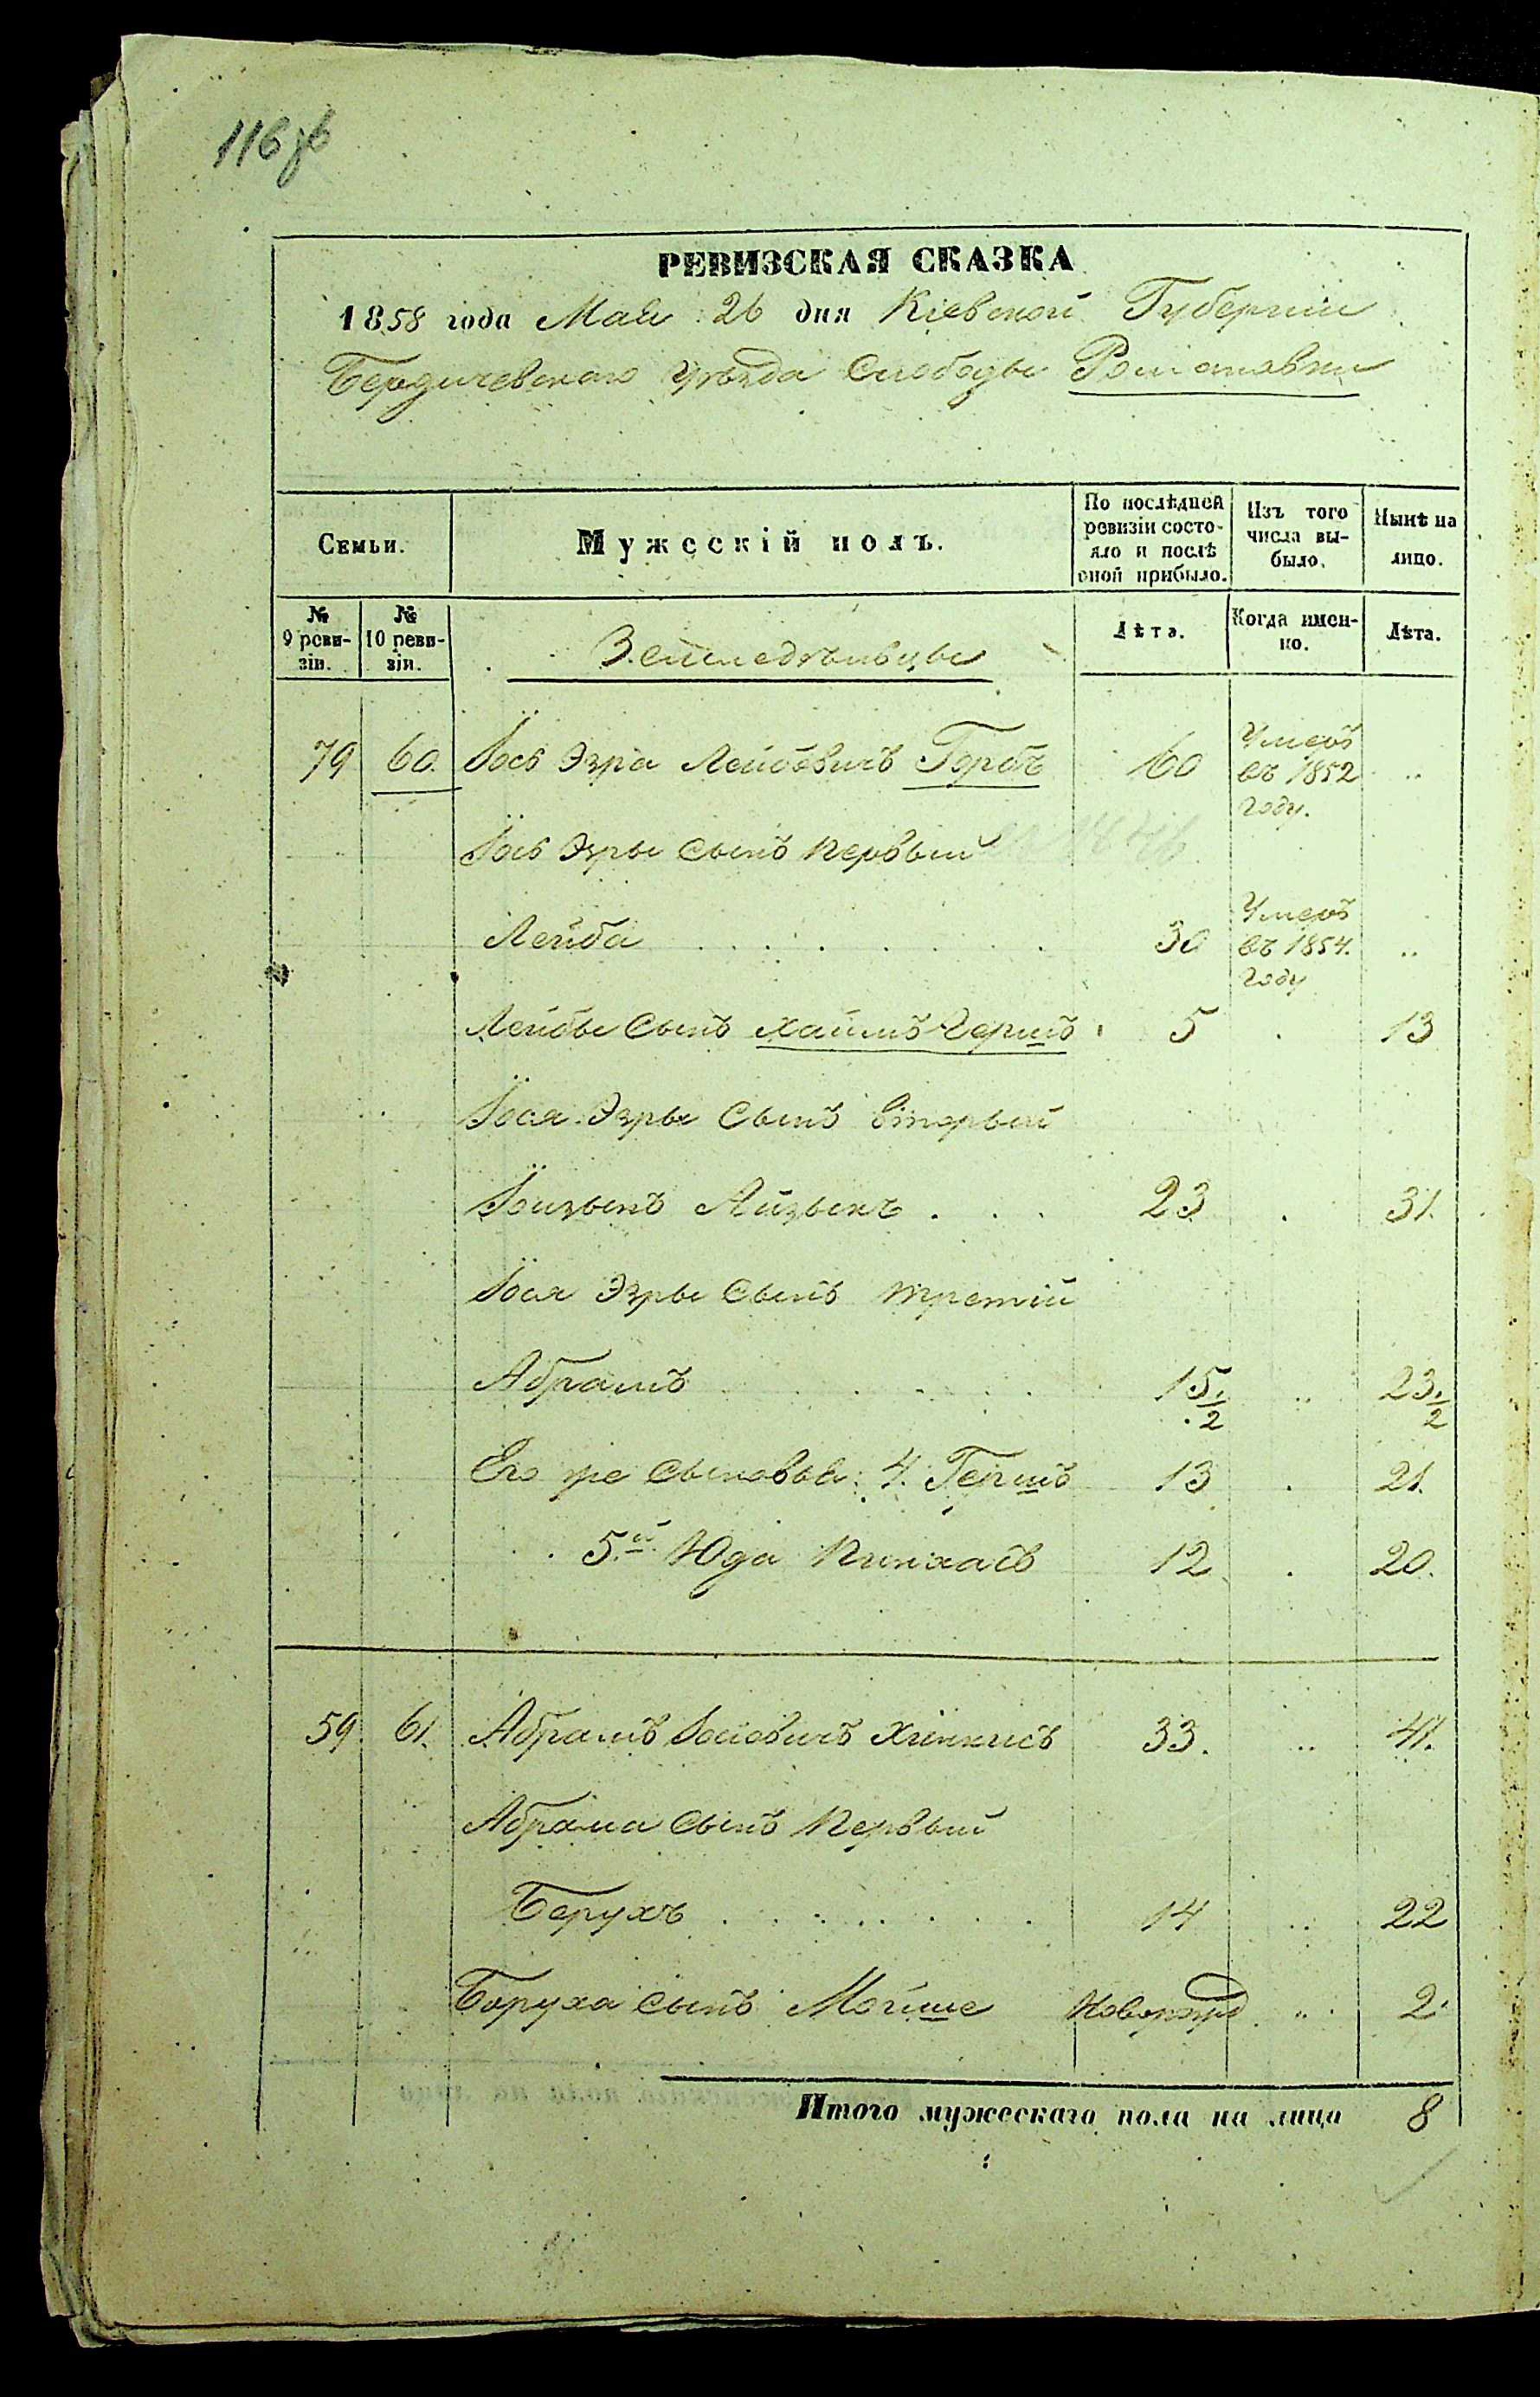 116 зв
РЕВИЗСКАЯ СКАЗКА
1858 года Мая 26 дня Кіевской Губерніи
Бердичевскаго Уѣзда Слободы Романовки
Семьи.
Мужескій полъ.
По послѣдней ревизіи состояло и послѣ оной прибыло.
Изъ того числа выбыло.
Нынѣ на лицо.
№ 9 ревизіи.
№ 10 ревизіи.
Земледѣльцы
Лѣта.
Когда именно.
Лѣта.
79 60. Іось Эзра Лейбовичъ Горбъ 60 Умеръ въ 1852 году. ..
Іось Эзры сынъ первый
Лейба 30 Умеръ въ 1854. году ..
Лейбы сынъ Хаимъ Гершъ 5 . 13
Іося Эзры сынъ вторый
Айзыкъ . . . 23 . 31.
Іося Эзры сынъ третій
Абрамъ 15 1/2 .. 23 1/2
Его же сыновья: 4. Гершъ 13 . 21.
5.й Юда Пинхасъ 12 . 20.
59. 61. Абрамъ Іосіовичъ Хинкисъ 33. .. 41.
Абрама сынъ первый
Берухъ 14 .. 22
Боруха сынъ Мойше Новорожд .. 2.
Итого мужескаго пола на лицо 8